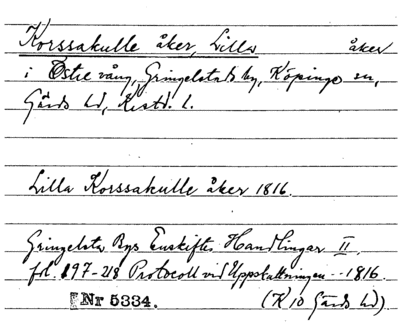 Korssakulle åker, Lilla åker
i Östre vång, Gringelstads by, Köpinge sn,
Gärds hd, Krist. l.
Lilla Korssakulle åker 1816.
Gringelsta Bys Enskiftes Handlingar II
fol. 197-218 Protocoll vid Uppskattningen -- 1816.
Nr 5334. (K 10 Gärds hd)